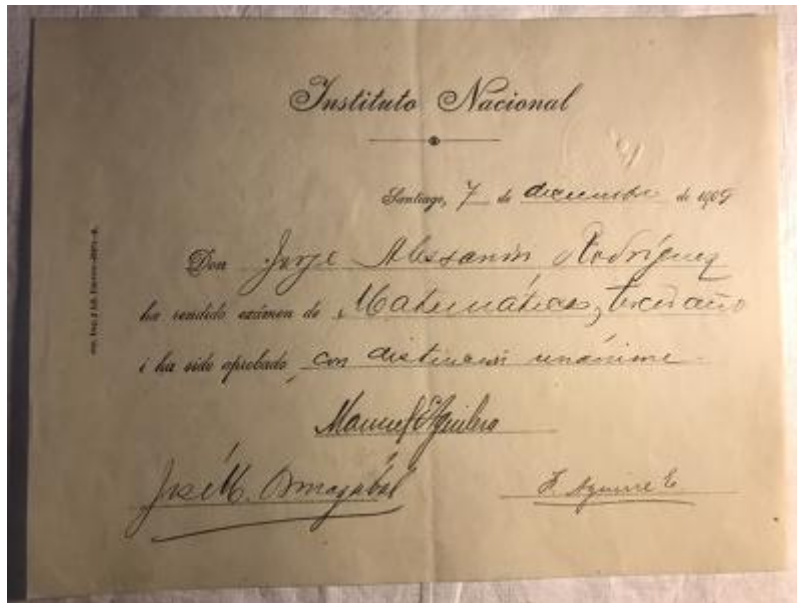 Instituto Nacional
Santiago, 7 de diciembre de 1909
Don Jorge Alessandri Rodríguez
ha rendido exámen de Matemáticas, tercer año
i ha sido aprobado con distincion unánime
Manuel Aguilera
José M.
F. Aguirre E